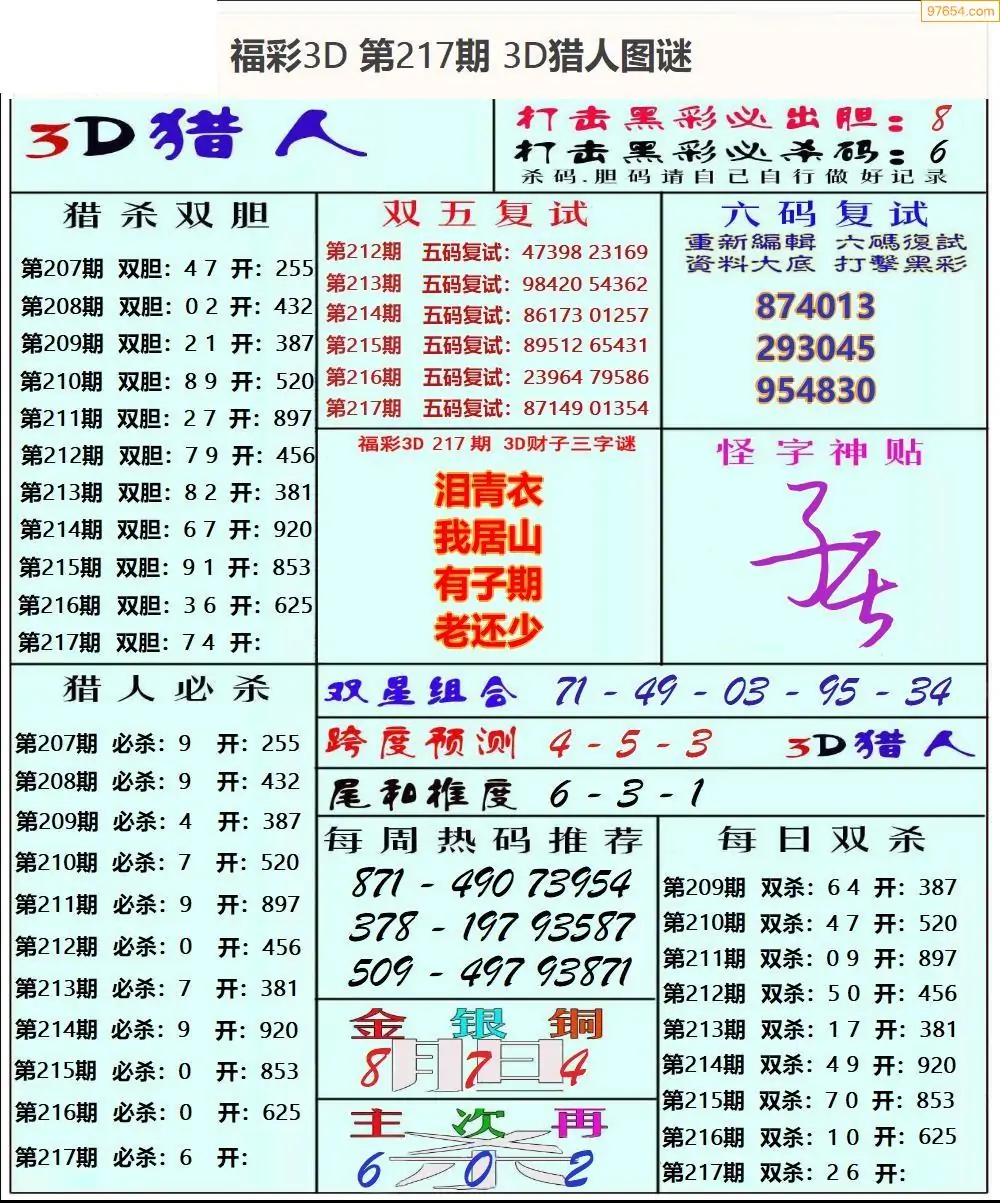 97654.com
福彩3D 第217期 3D猎人图谜
3D猎人
打击黑彩必出胆：8
打击黑彩必杀码：6
杀码.胆码请自己自行做好记录
猎杀双胆
第207期 双胆：4 7 开：255
第208期 双胆：0 2 开：432
第209期 双胆：2 1 开：387
第210期 双胆：8 9 开：520
第211期 双胆：2 7 开：897
第212期 双胆：7 9 开：456
第213期 双胆：8 2 开：381
第214期 双胆：6 7 开：920
第215期 双胆：9 1 开：853
第216期 双胆：3 6 开：625
第217期 双胆：7 4 开：
双五复试
第212期 五码复试：47398 23169
第213期 五码复试：98420 54362
第214期 五码复试：86173 01257
第215期 五码复试：89512 65431
第216期 五码复试：23964 79586
第217期 五码复试：87149 01354
六码复试
重新編輯 六碼復試
資料大底 打擊黑彩
874013
293045
954830
福彩3D 217 期 3D财子三字谜
泪青衣
我居山
有子期
老还少
怪字神贴
猎人必杀
第207期 必杀：9 开：255
第208期 必杀：9 开：432
第209期 必杀：4 开：387
第210期 必杀：7 开：520
第211期 必杀：9 开：897
第212期 必杀：0 开：456
第213期 必杀：7 开：381
第214期 必杀：9 开：920
第215期 必杀：0 开：853
第216期 必杀：0 开：625
第217期 必杀：6 开：
双星组合 71 - 49 - 03 - 95 - 34
跨度预测 4 - 5 - 3 3D猎人
尾和推度 6 - 3 - 1
每周热码推荐
871 - 490 73954
378 - 197 93587
509 - 497 93871
金银铜
胆
8 7 4
主次再
杀
6 0 2
每日双杀
第209期 双杀：6 4 开：387
第210期 双杀：4 7 开：520
第211期 双杀：0 9 开：897
第212期 双杀：5 0 开：456
第213期 双杀：1 7 开：381
第214期 双杀：4 9 开：920
第215期 双杀：7 0 开：853
第216期 双杀：1 0 开：625
第217期 双杀：2 6 开：